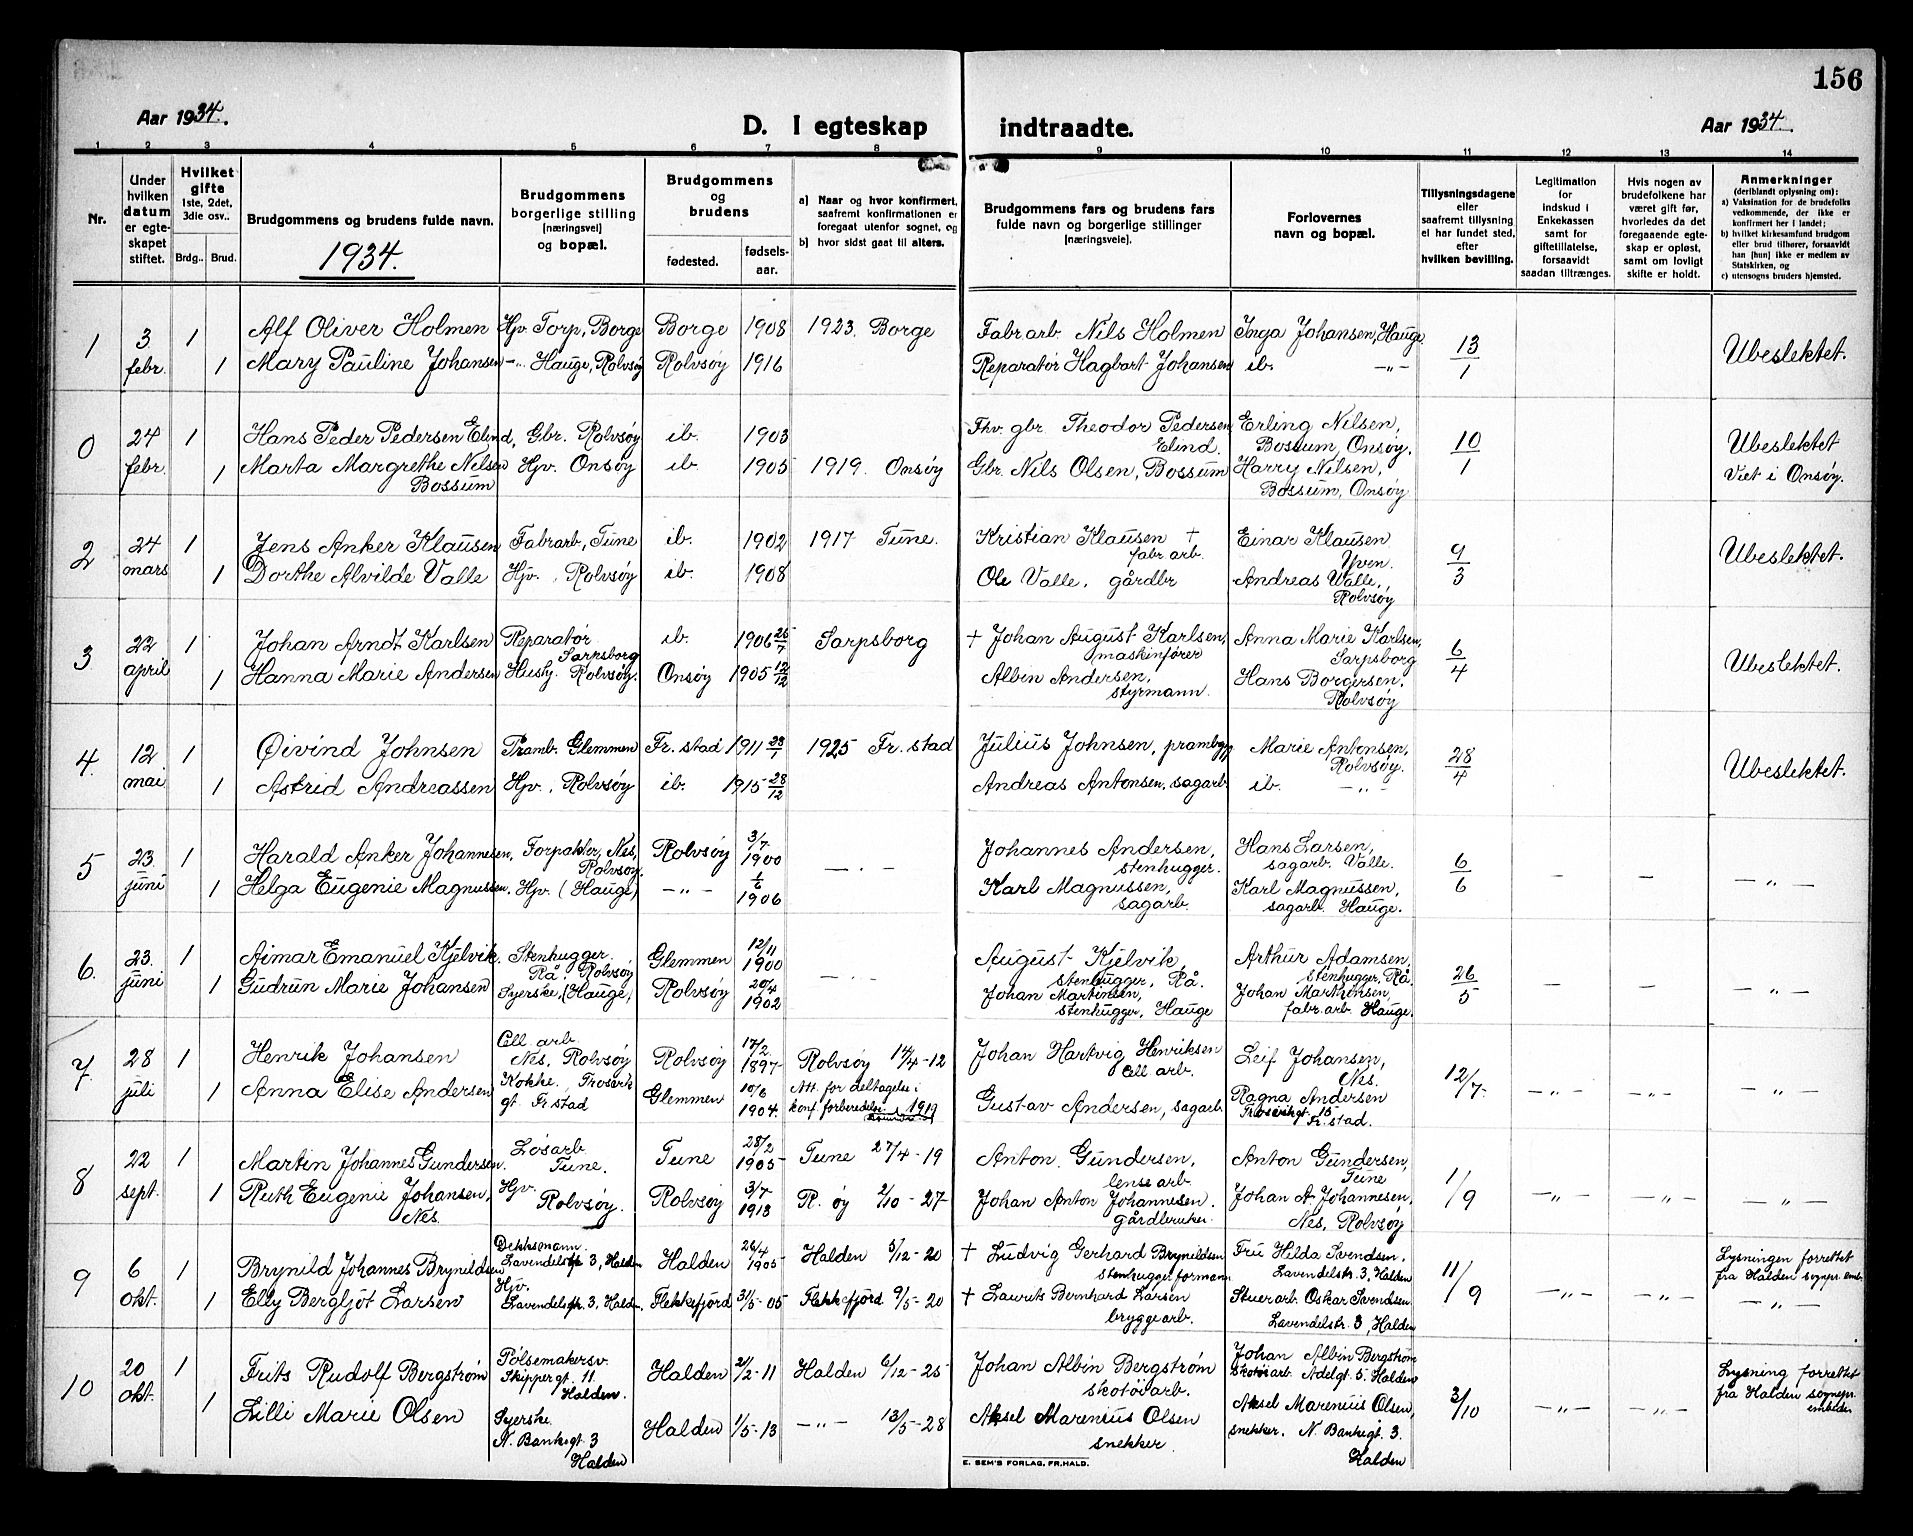 156
Aar 1934.
D. I egteskap indtraadte.
Aar 1934.
1 2 3 4 5 6 7 8 9 10 11 12 13 14
Nr.
Under hvilken datum er egte- skapet stiftet.
Hvilket gifte 1ste, 2det, 3die osv..
Brdg.. Brud.
Brudgommens og brudens fulde navn.
1934.
Brudgommens borgerlige stilling (næringsvei) og bopæl.
Brudgommens og brudens
fødested. fødsels- aar.
a) Naar og hvor konfirmert, saafremt konfirmationen er foregaat utenfor sognet, og
b) hvor sidst gaat til alters.
Brudgommens fars og brudens fars fulde navn og borgerlige stillinger (næringsveie).
Forlovernes navn og bopæl.
Tillysningsdagene eller saafremt tillysning ei har fundet sted, efter hvilken bevilling.
Legitimation for indskud i Enkekassen samt for giftetillatelse, forsaavidt saadan tiltrænges.
Hvis nogen av brudefolkene har været gift før, hvorledes da det foregaaende egte- skap er opløst, samt om lovligt skifte er holdt.
Anmerkninger (deriblandt oplysning om): a) Vaksination for de brudefolks vedkommende, der ikke er konfirmert her i landet; b) hvilket kirkesamfund brudgom eller brud tilhører, forsaavidt han (hun) ikke er medlem av Statskirken, og c) utensogns bruders hjemsted.
1 3 febr. 1 Alf Oliver Holmen Hjv Torp, Borge Borge 1908 1923. Borge Fabr arb. Nils Holmen Inga Johansen, Hauge 13/1 Ubeslektet.
1 Mary Pauline Johansen -"- Hauge, Rolvsøy Rolvsøy 1916 Reparatør Hagbart Johansen ib. -"-
0 24 febr. 1 Hans Peder Pedersen Elind, Gbr. Rolvsøy ib. 1903 Fhv. gbr. Theodor Pedersen Elind. Erling Nilsen, Bossum, Onsøy. 10/1 Ubeslektet
1 Marta Margrethe Nilsen Bossum Hjv. Onsøy ib. 1905 1919. Onsøy Gbr. Nils Olsen, Bossum Harry Nilsen, Bossum, Onsøy Viet i Onsøy.
2 24 mars 1 Jens Anker Klausen Fabrarb, Tune ib. 1902 1917 Tune. Kristian Klausen + fabr. arb. Einar Klausen Yven. 9/3 Ubeslektet.
1 Dorthe Alvilde Valle Hjv. Rolvsøy ib. 1908 Ole Valle, gårdbr Andreas Valle, Rolvsøy
3 22 april 1 Johan Arndt Karlsen Reparatør Sarpsborg ib. 1906 25/7 Sarpsborg + Johan August Karlsen, maskinfører Anna Marie Karlsen, Sarpsborg 6/4 Ubeslektet.
1 Hanna Marie Andersen Hushj. Rolvsøy. Onsøy 1905 12/12 Albin Andersen, styrmann. Hans Borgersen, Rolvsøy
4. 12 mai 1 Øivind Johnsen Pramb. Glemmen Fr. stad 1911 23/7 1925 Fr. stad Julius Johnsen, prambygg Marie Antonsen, Rolvsøy. 28/4 Ubeslektet.
1 Astrid Andreassen Hjv. Rolvsøy ib. 1915 28/12 Andreas Antonsen, sagarb. ib. -"-
5 23. juni 1 Harald Anker Johannesen, Forpakter, Nes, Rolvsøy. Rolvsøy 3/7 1900 - . - Johannes Andersen, stenhugger. Hans Larsen, sagarb. Valle. 6/6 - - -"-
1 Helga Eugenie Magnussen, Hjv. (Hauge) -"- 1/6 1906 Karl Magnussen, sagarb. Karl Magnussen, sagarb. Hauge.
6. 23. juni 1 Aimar Emanuel Kjelvik. Stenhugger. Rå, Rolvsøy Glemmen 12/11 1900 - . - August Kjelvik, stenhugger, Rå. Arthur Adamsen, stenhugger, Rå. 26/5 - - -"-
1 Gudrun Marie Johansen Syerske, (Hauge) Rolvsøy 20/4 1902 Johan Martinsen, stenhugger, Hauge Johan Marthinsen, fabr. arb. Hauge.
7. 28 juli 1 Henrik Johansen Cell arb. Nes, Rolvsøy Rolvsøy 17/2 1897 Rolvsøy 14/4-12 Johan Hartvig Henriksen Cell arb. Leif Johansen, Nes. 12/7. -"- -"- "
1 Anna Elise Andersen Kokke, Trosvik gt. Fr. stad Glemmen 10/6 1904. Att. for deltagelse i konf. forberedelse 1919 Gustav Andersen, sagarb Ragna Andersen Trosvikgt. 15 Fr. stad.
8 22 sept. 1 Martin Johannes Gundersen. Løsarb Tune. Tune 28/2 1905 Tune 27/4-19 Anton Gundersen, lense arb. Anton Gundersen, Tune 1/9 -"- -"- -"-
1 Ruth Eugenie Johansen, Nes. Hjv. Rolvsøy. Rolvsøy 3/7 1913 R. øy 2/10-27 Johan Anton Johannesen. gårdbruker. Johan A. Johannesen, Nes, Rolvsøy
9 6 okt. 1 Brynild Johannes Brynildsen Dekksmann. Lavendelstr 3, Halden Halden 26/4 1905 Halden 5/12-20 + Ludvig Gerhard Brynildsen stenhugger formann Fru Hilda Svendsen, Lavendelstr. 3, Halden 11/9 -"- -"- Lysningen forrettet fra Halden sognpr. emb.
1 Elly Bergljot Larsen Hjv. Lavendelstr. 3, Halden Flekkefjord 31/5-05 Flekkefjord 9/5-20 + Laurits Bernhard Larsen bryggearb. Stuerarb. Oskar Svendsen. Lavendelstr. 3, Halden -"-
10 20 okt. 1 Frits Rudolf Bergstrøm Pølsemakersv. Skippergt. 11 Halden. Halden 21/2-11 Halden 6/12-25 Johan Albin Bergstrøm skotøiarb. Johan Albin Bergstrøm skotøiarb. Adelgt 5. Halden 3/10 -"- -"- Lysning forrettet fra Halden sognepr. embedet
1 Lilli Marie Olsen Syerske N. Banksgt 3 Halden Halden 1/5-13 -"- 13/5-28 Aksel Marenius Olsen snekker. Aksel Marenius Olsen, snekker. N. Banksgt 3. Halden
E. SEM'S FORLAG, FR.HALD.